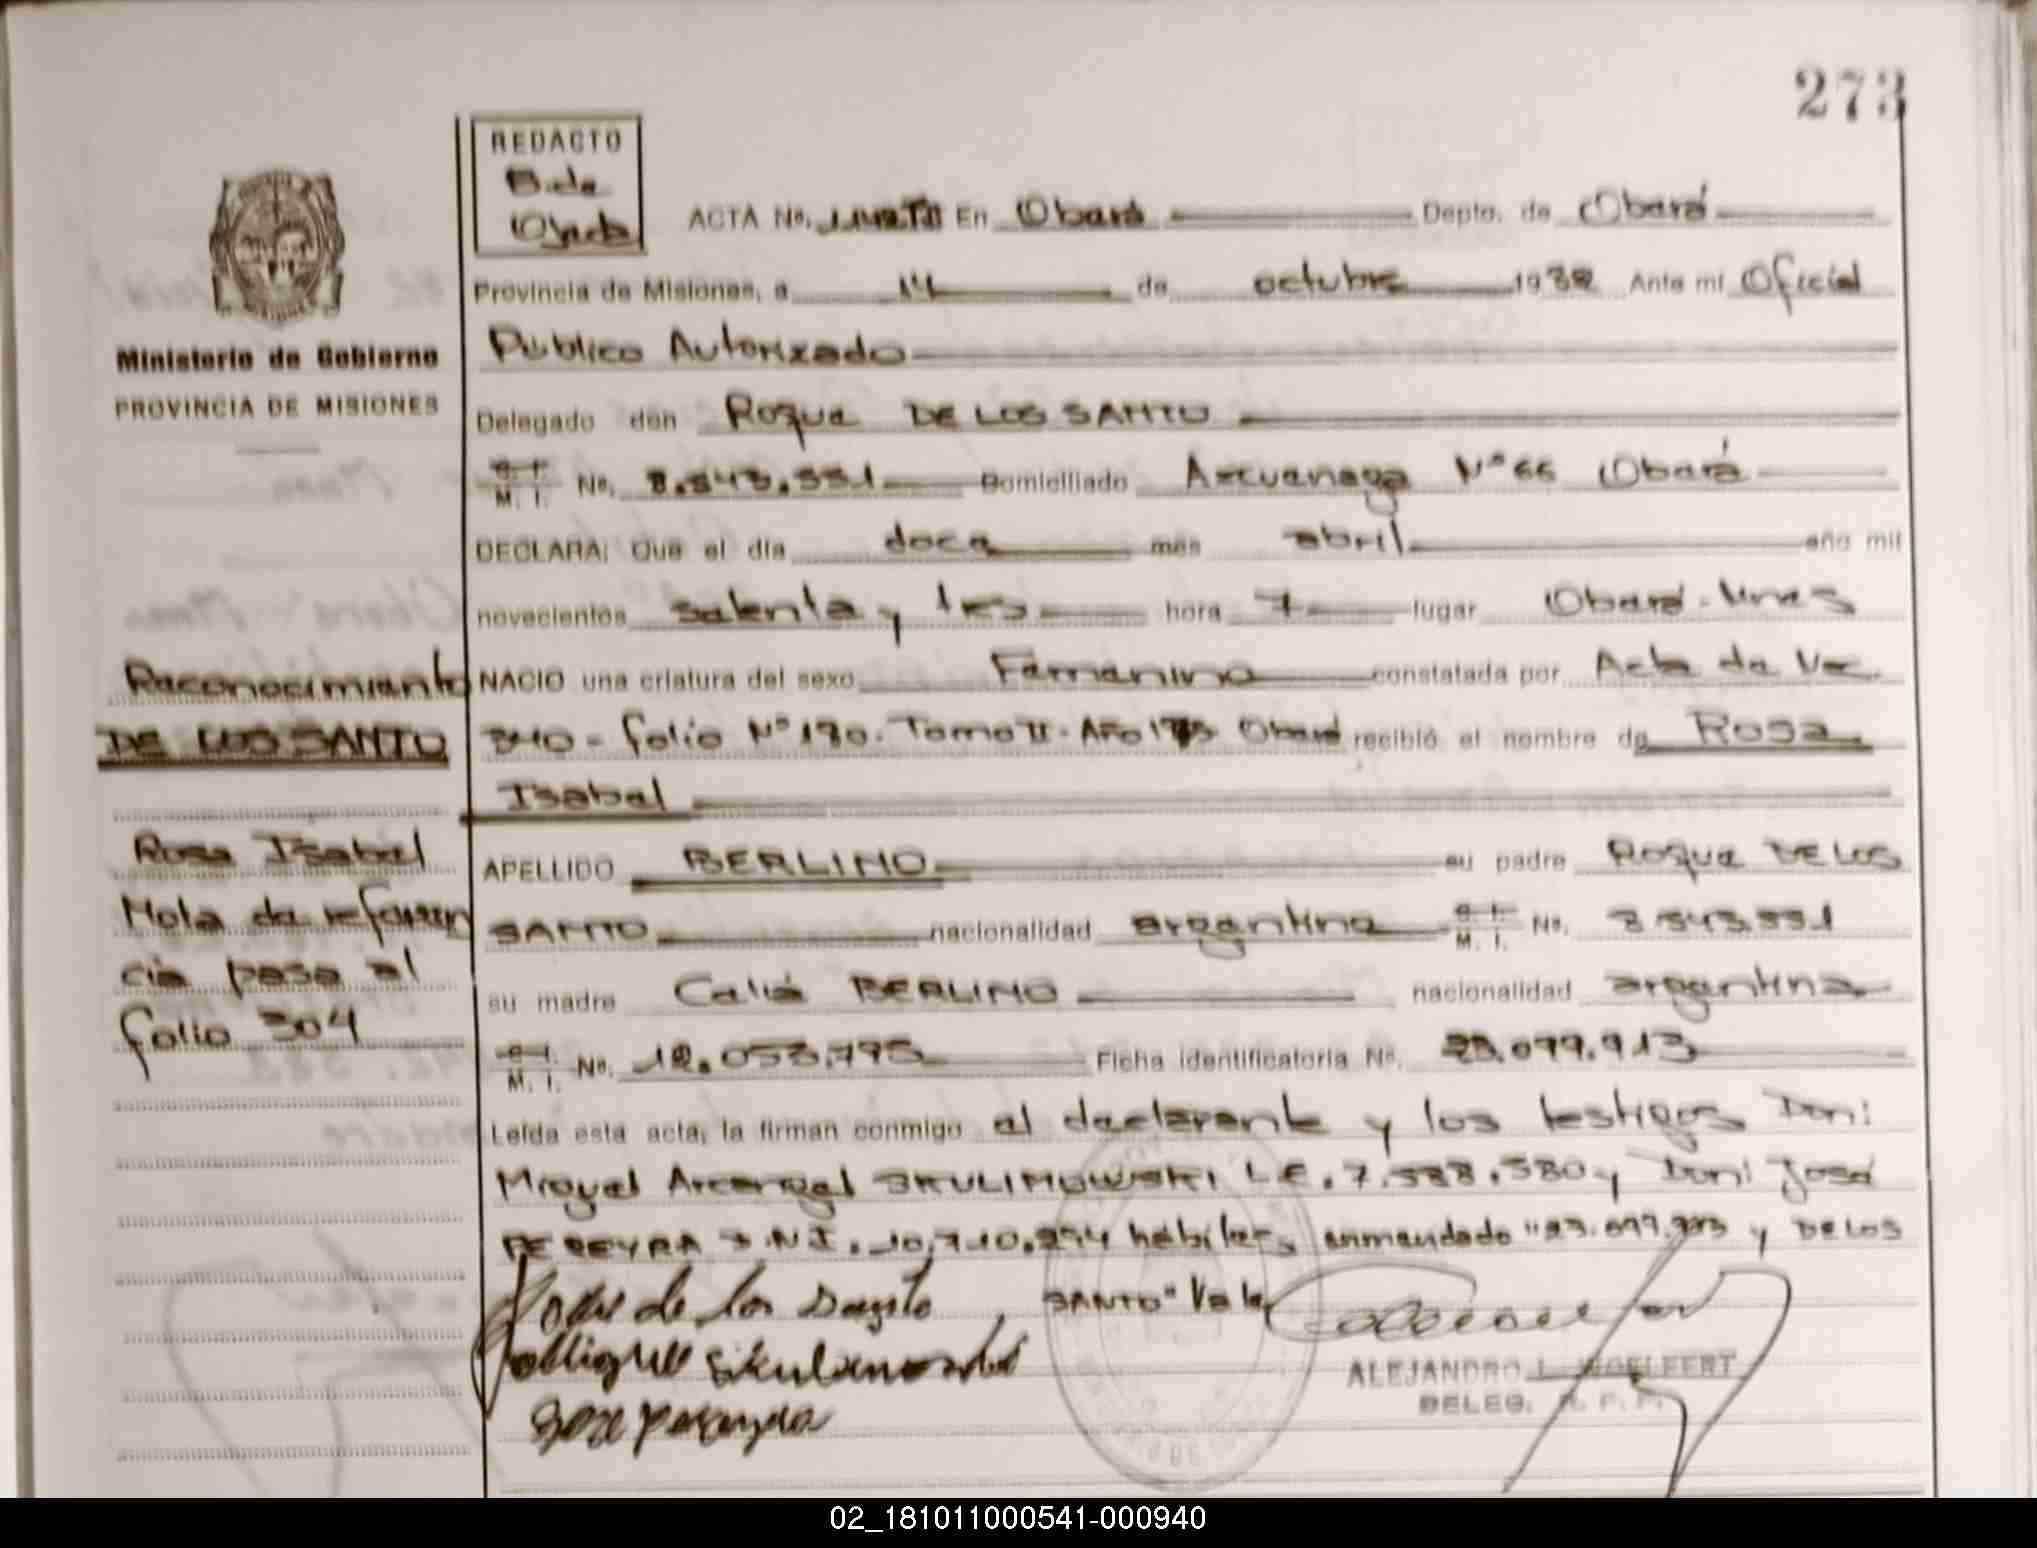 273
REDACTO
B. de
Ojeda
ACTA Nº. En Oberá Depto. de Oberá
Provincia de Misiones, a 14 de octubre 198 Ante mí Oficial
Público Autorizado
Ministerio de Gobierno
PROVINCIA DE MISIONES
Delegado don Roque DE LOS SANTO
M. I. Nº. 8.543.551 Domiciliado Azcuenaga Nº 66 Oberá
DECLARA: Que el día doce mes abril año mil
novecientos setenta y tres hora 7 lugar Oberá - Mnes
Reconocimiento
NACIO una criatura del sexo Femenino constatada por Acta de Nac
DE LOS SANTO
340 - folio Nº 170. Tomo II - Año 1973 Oberá recibió el nombre de Rosa
Isabel
Rosa Isabel
APELLIDO BERLINO su padre Roque DE LOS
Nota de referen
SANTO nacionalidad argentina M. I. Nº. 8.543.551
cia pasa al
su madre Celia BERLINO nacionalidad argentina
folio 304
M. I. Nº. 12.053.795 Ficha identificatoria Nº. 23.097.913
Leída esta acta, la firman conmigo el declarante y los testigos Don:
Miguel Arcangel SKULIMOWSKI L.E. 7.588.580 y Don: José
PEREYRA D.N.I. 10.710.274 hábiles, enmendado "23.097. y DE LOS
SANTO" Vale
Roque de los Santo
Miguel Skulimowski
Jose Pereyra
ALEJANDRO L.
DELEG. R. P. P.
02_181011000541-000940